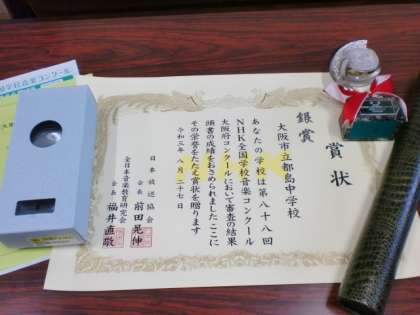 賞状
銀賞
大阪市立都島中学校
あなたの学校は第八十八回
NHK全国学校音楽コンクール
大阪府コンクールにおいて審査の結果
頭書の成績をおさめられました ここに
その栄誉をたたえ賞状を贈ります
令和三年八月二十七日
日本放送協会
会長 前田晃伸
全日本音楽教育研究会
会長 福井直敬